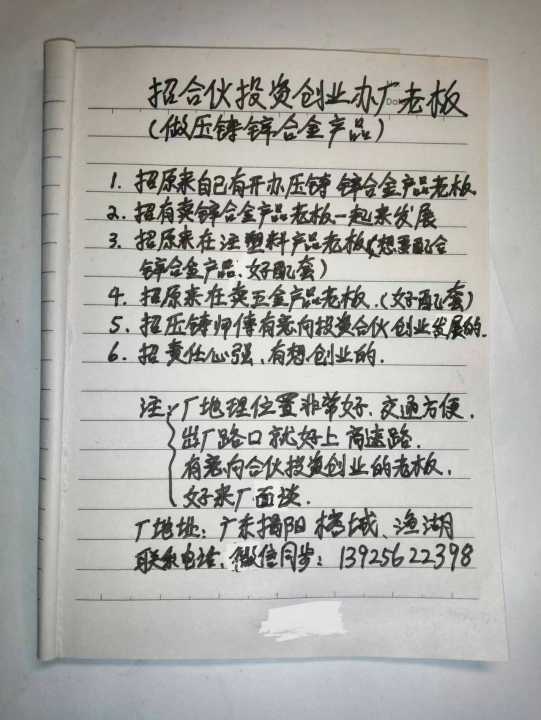 招合伙投资创业办厂老板
(做压铸锌合金产品)
1. 招原来自己有开办压铸锌合金产品老板.
2. 招有卖锌合金产品老板一起来发展
3. 招原来在注塑料产品老板(想要配合
锌合金产品.好配套)
4. 招原来在卖五金产品老板.(好配套)
5. 招压铸师傅有意向投资合伙创业发展的.
6. 招责任心强.有想创业的.
注: 厂地理位置非常好.交通方便.
出厂路口就好上高速路.
有意向合伙投资创业的老板.
好来厂面谈.
厂地址: 广东揭阳榕城、渔湖
联系电话.微信同步: 13925622398